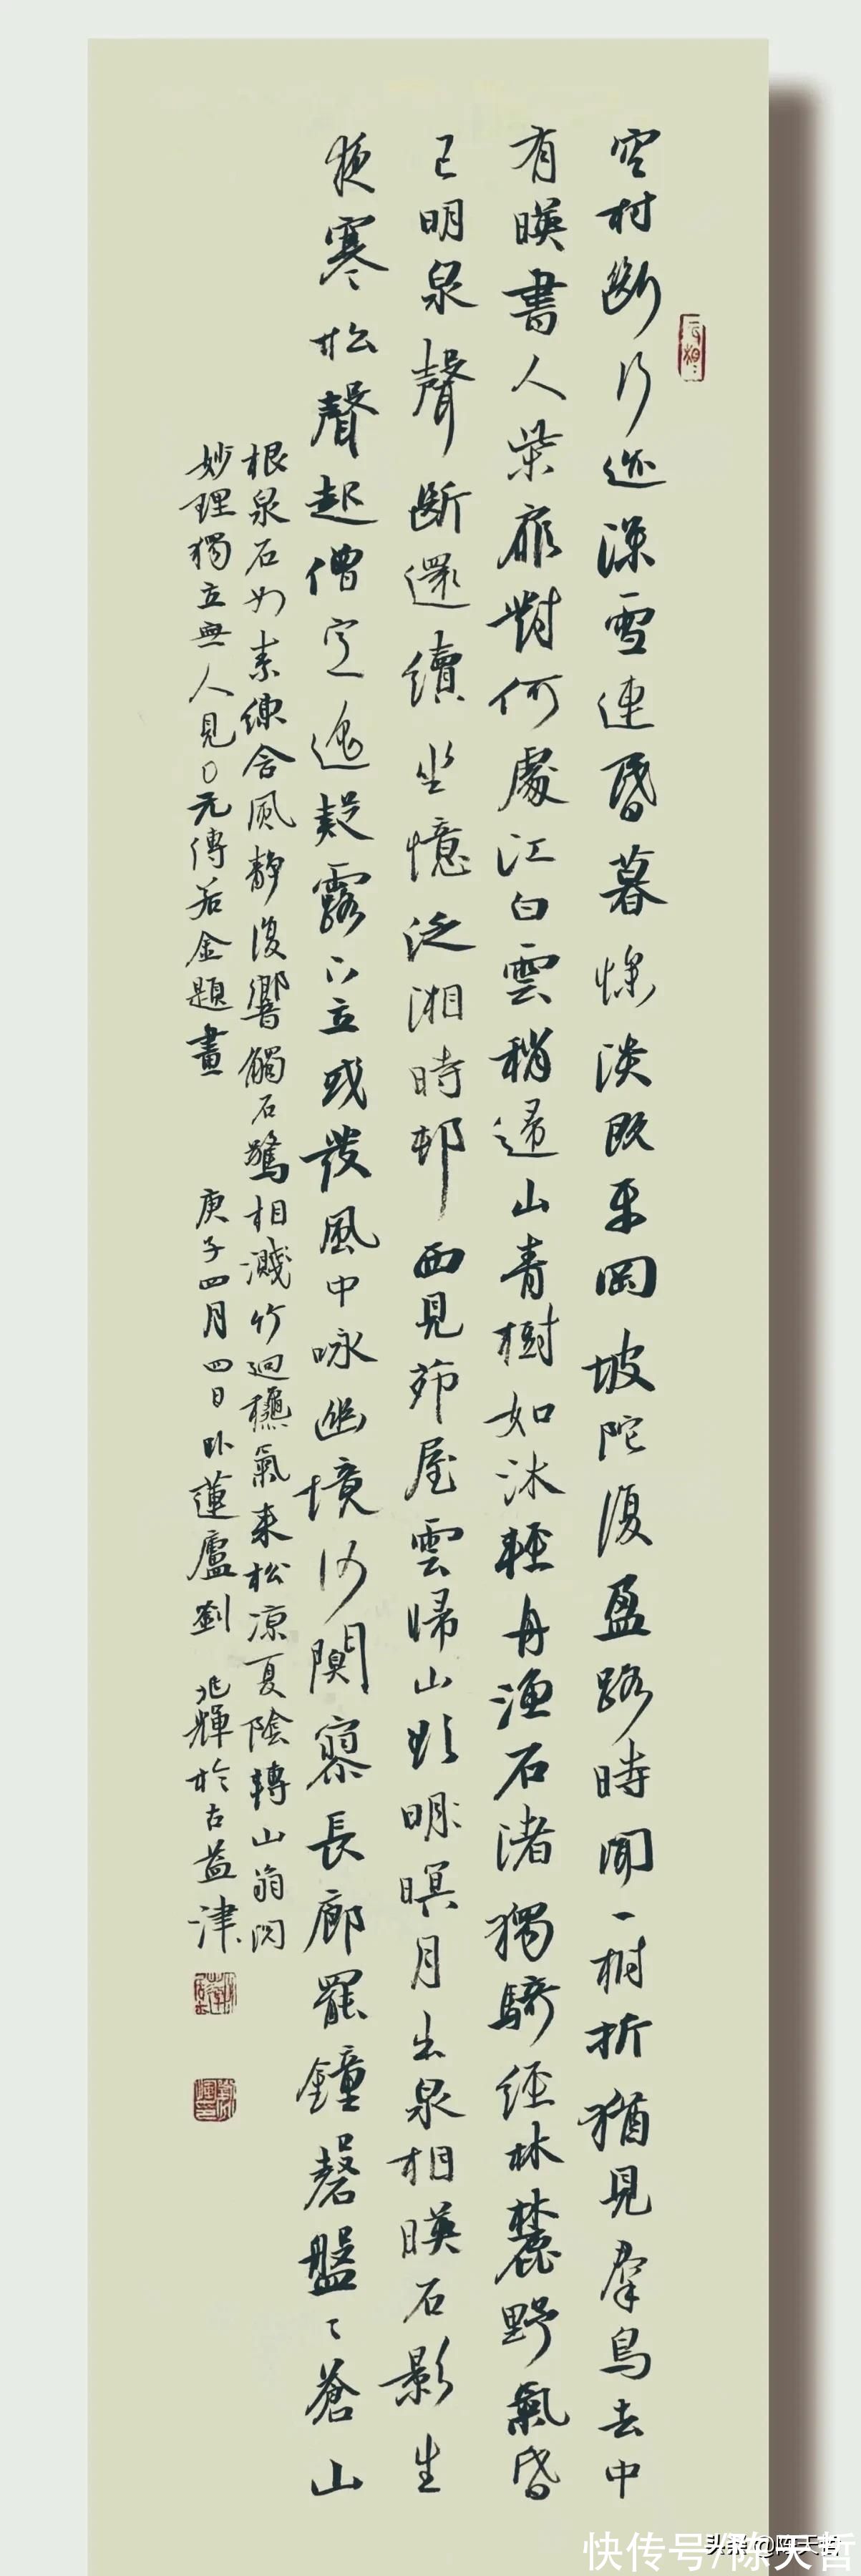 空村斷行迹深雪連昏暮慘淡既平岡坡陀復盈路時聞一樹折猶見群鳥去中
有暎書人柴扉對何處江白雲稍歸山青樹如沐輕舟漁石渚獨騎經林麓野氣昏
已明泉聲斷還續坐憶泛湘時邨西見茆屋雲歸山欲暝暝月出泉相暎石影生
夜寒松聲起僧定逸疑露下立或發風中咏幽境何闃寥長廊罷鐘磬盤々蒼山
根泉石如素練含風静復響觸石驚相濺竹迴櫵氣来松凉夏陰轉山翁閱
妙理獨立無人見 元傅若金題畫 庚子四月四日卧蓮廬劉兆輝於古益津
快传号/陈天哲
头条@陈天哲